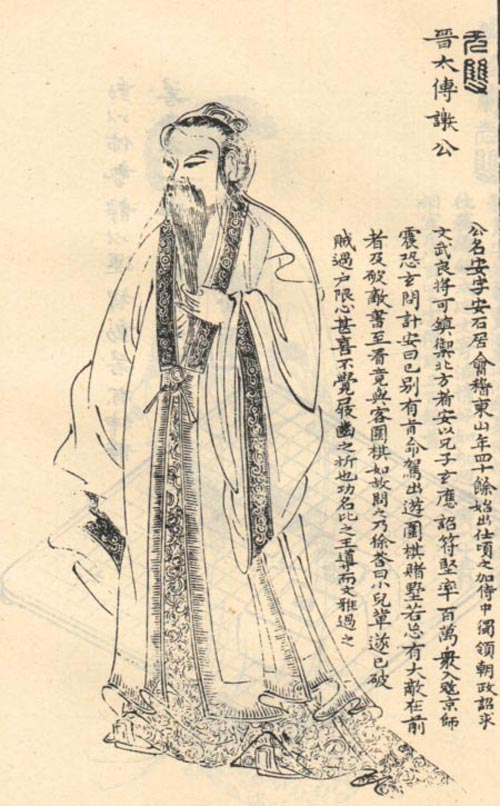 无雙
晋太傅謝公
公名安字安石居會稽東山年四十餘始出仕頃之加侍中獨領朝政詔求
文武良將可鎮御北方者安以兄子玄應詔符堅率百萬衆入寇京師
震恐玄問計安曰已别有旨命駕出遊圍棋賭墅若忘有大敵在前
者及破敵書至看竟與客圍棋如故問之乃徐答曰小兒輩遂已破
賊過户限心甚喜不覺屐齒之折也功名比之王導而文雅過之